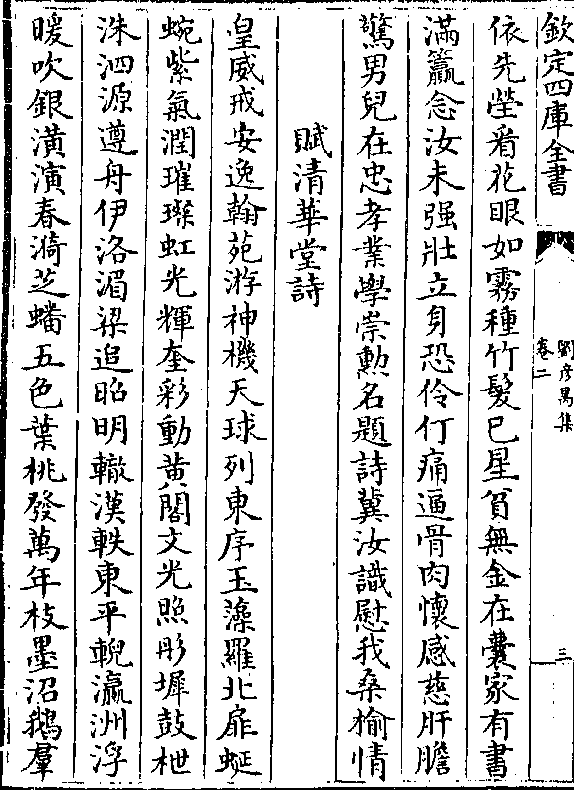 欽定四庫全書
劉彦昺集
卷二
三
依先塋看花眼如霧種竹髮已星貧無金在囊家有書
滿籯念汝未强壯立身恐伶仃痛逼骨肉懷感慈肝膽
驚男兒在忠孝業學崇勲名題詩冀汝識慰我桑榆情
賦清華堂詩
皇威戒安逸翰苑游神機天球列東序玉藻羅北扉蜒
蜿紫氣潤璀璨虹光輝奎彩動黄閣文光照彤墀鼓枻
洙泗源遵舟伊洛湄梁追昭明轍漢軼東平輗瀛洲浮
暖吹銀潢演春漪芝蟠五色葉桃發萬年枝墨沼鵝羣